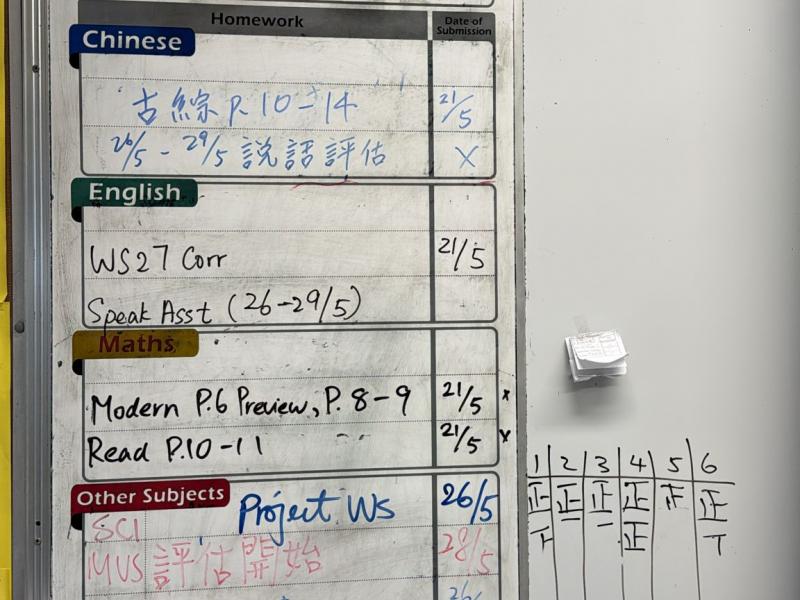 Homework Date of Submission
Chinese
古綜 P. 10-14 21/5
26/5 - 29/5 說話評估 X
English
WS27 Corr 21/5
Speak Asst (26-29/5)
Maths
Modern P.6 Preview, P. 8-9 21/5 x
Read P.10-11 21/5 x
Other Subjects
Project WS 26/5
SCI
MUS 評估開始 28/5
26/
1 2 3 4 5 6
正 正 正 正 正 正